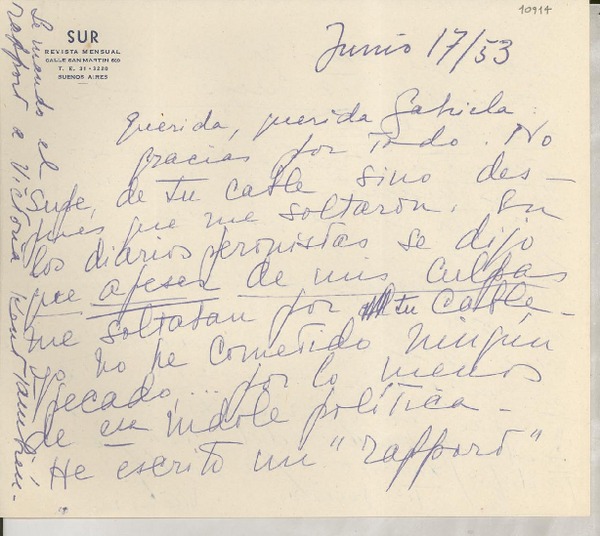 10914
SUR
REVISTA MENSUAL
CALLE SAN MARTIN 689
T. E. 31-3220
BUENOS AIRES
Junio 17/53
Querida, querida Gabriela
gracias por todo. No
supe, de tu cable sino des-
pués que me soltaron. En
los diarios peronistas se dijo
que apesar de mis culpas
me soltaban por tu cable-
Yo no he cometido ningún
pecado... por lo menos
de en indole política-
He escrito un "rapport"
Le mando el
rapport a Victoria Kent también-